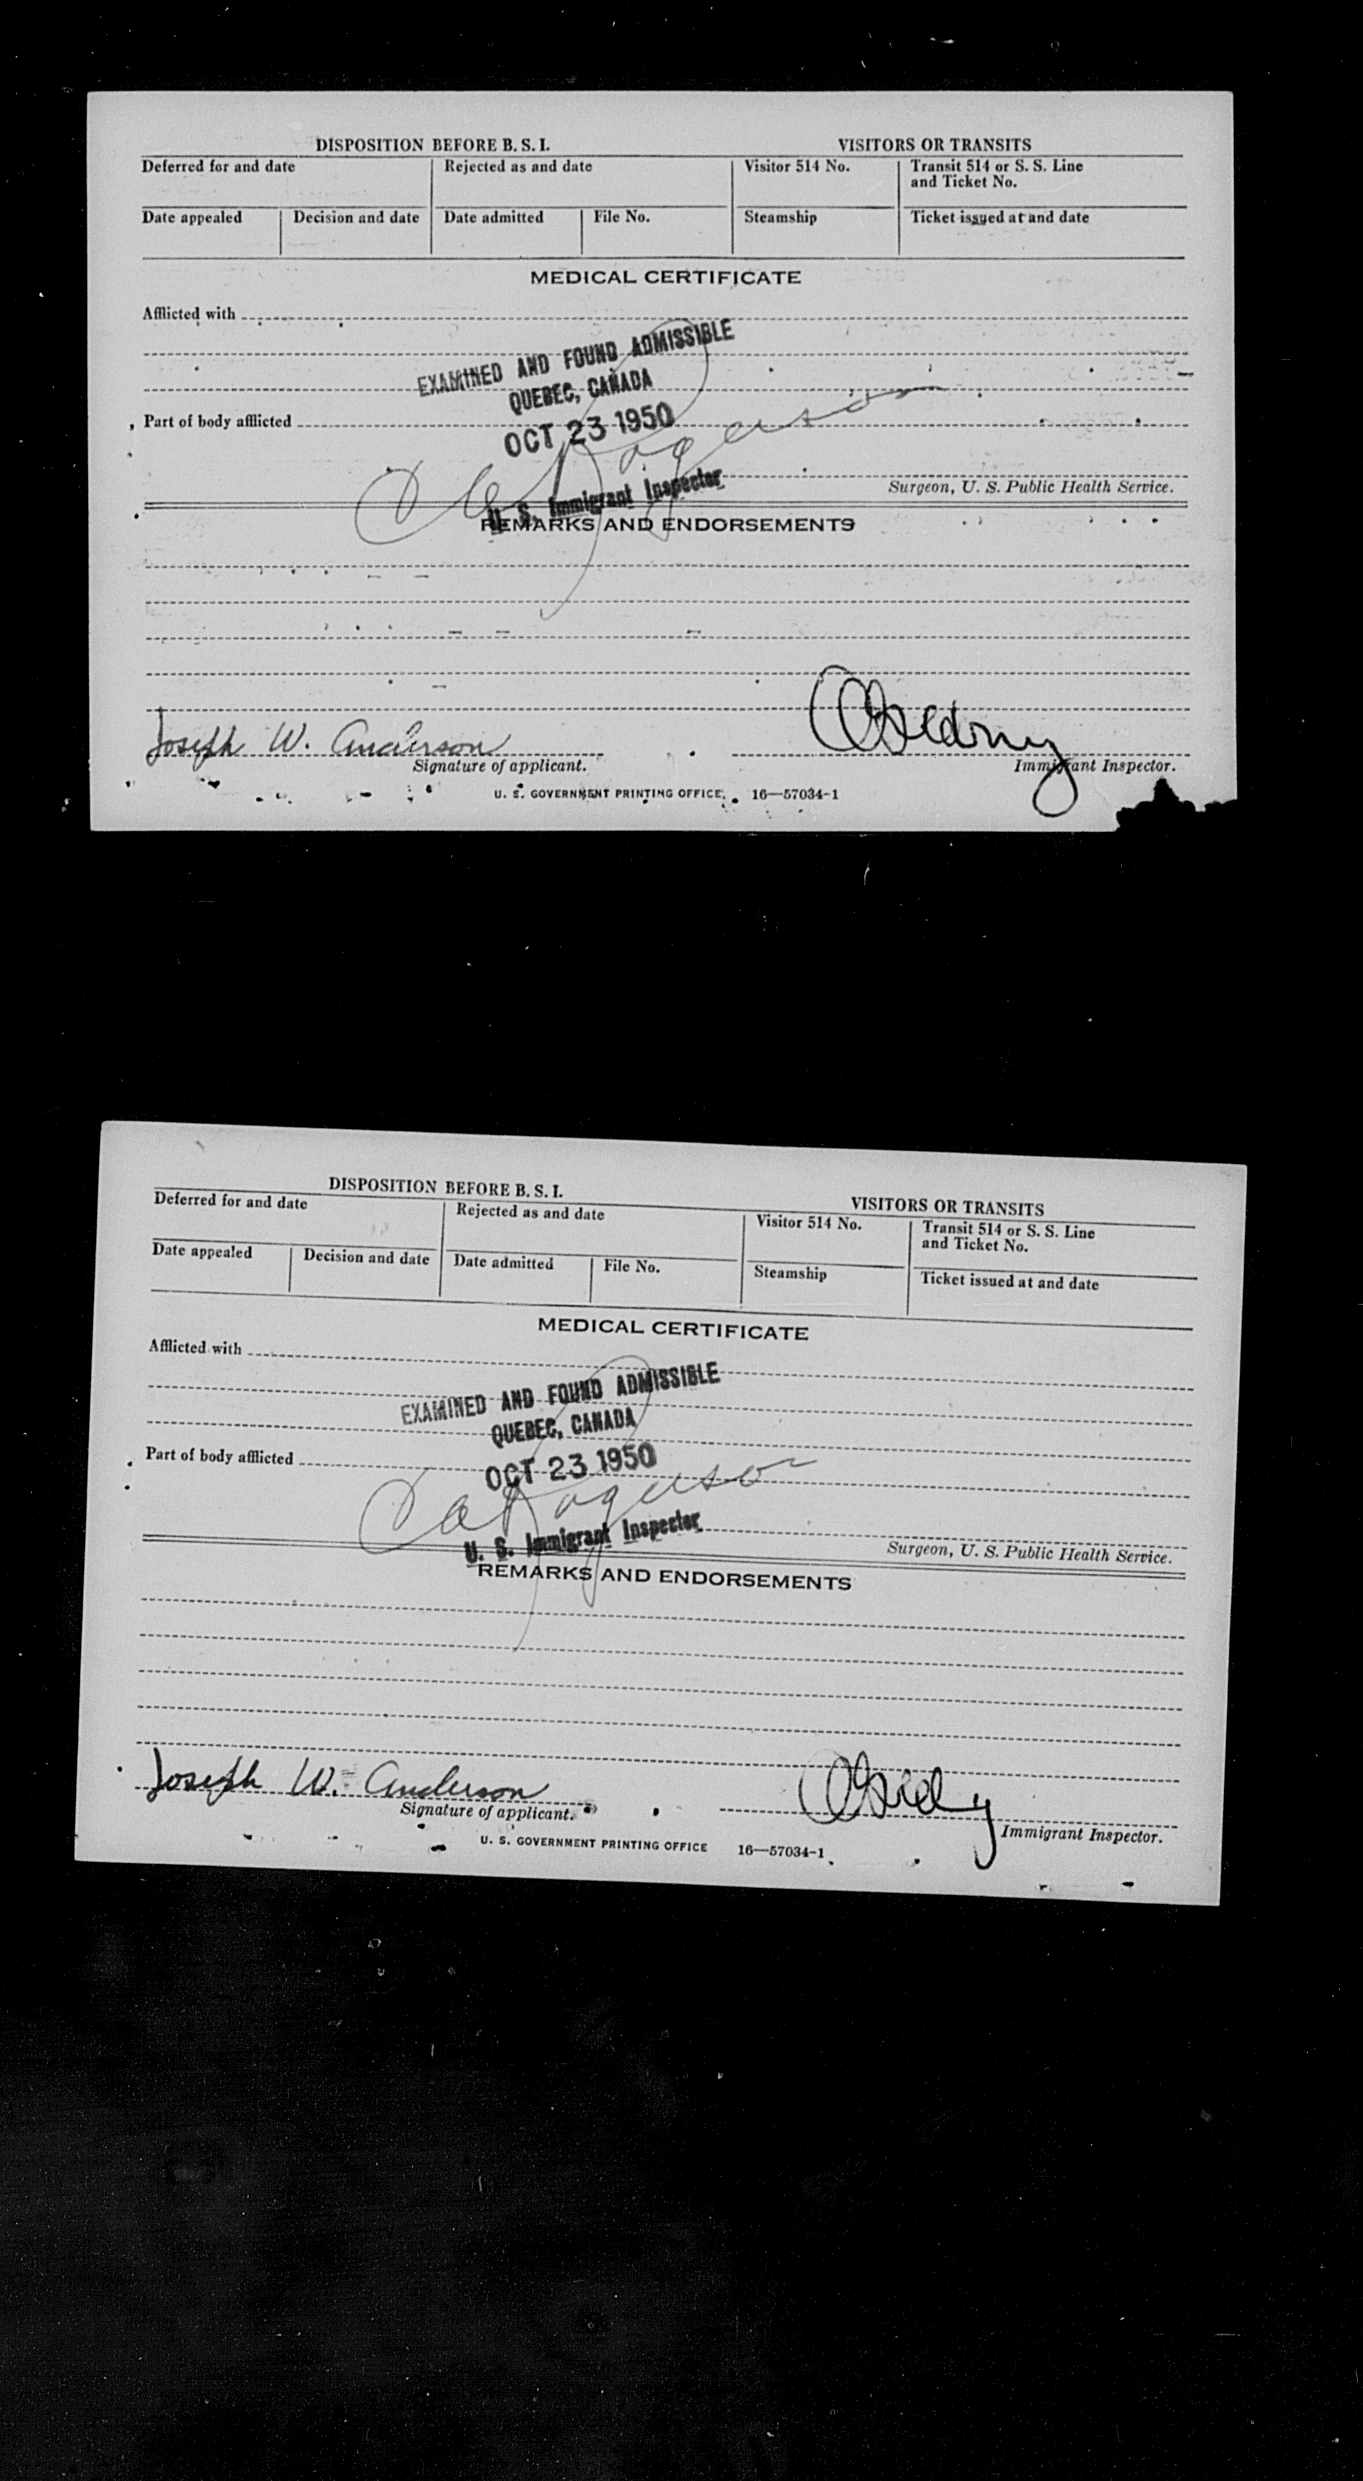 DISPOSITION BEFORE B. S. I. VISITORS OR TRANSITS
Deferred for and date Rejected as and date Visitor 514 No. Transit 514 or S. S. Line and Ticket No.
Date appealed Decision and date Date admitted File No. Steamship Ticket issued at and date
MEDICAL CERTIFICATE
Afflicted with
EXAMINED AND FOUND ADMISSIBLE
QUEBEC, CANADA
Part of body afflicted
OCT 23 1950
U. S. Immigrant Inspector
Surgeon, U. S. Public Health Service.
REMARKS AND ENDORSEMENTS
Joseph W. Anderson
Signature of applicant. Immigrant Inspector.
U. S. GOVERNMENT PRINTING OFFICE 16—57034-1
DISPOSITION BEFORE B. S. I. VISITORS OR TRANSITS
Deferred for and date Rejected as and date Visitor 514 No. Transit 514 or S. S. Line and Ticket No.
Date appealed Decision and date Date admitted File No. Steamship Ticket issued at and date
MEDICAL CERTIFICATE
Afflicted with
EXAMINED AND FOUND ADMISSIBLE
QUEBEC, CANADA
Part of body afflicted
OCT 23 1950
U. S. Immigrant Inspector
Surgeon, U. S. Public Health Service.
REMARKS AND ENDORSEMENTS
Joseph W. Anderson
Signature of applicant. Immigrant Inspector.
U. S. GOVERNMENT PRINTING OFFICE 16—57034-1